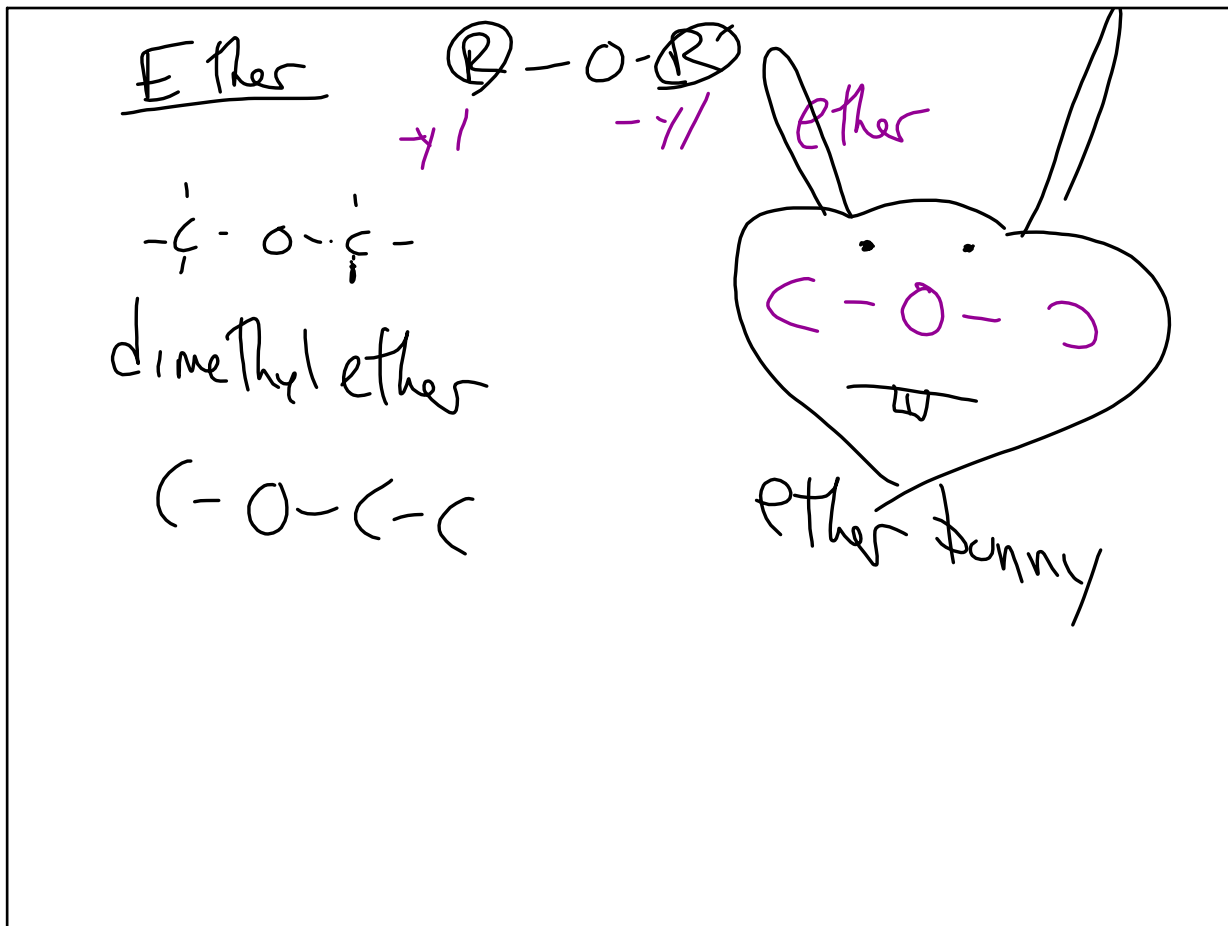 Ether R - O - R
-yl -yl ether
- C - O - C -
C - O - C
dimethyl ether
C - O - C - C
ether bunny